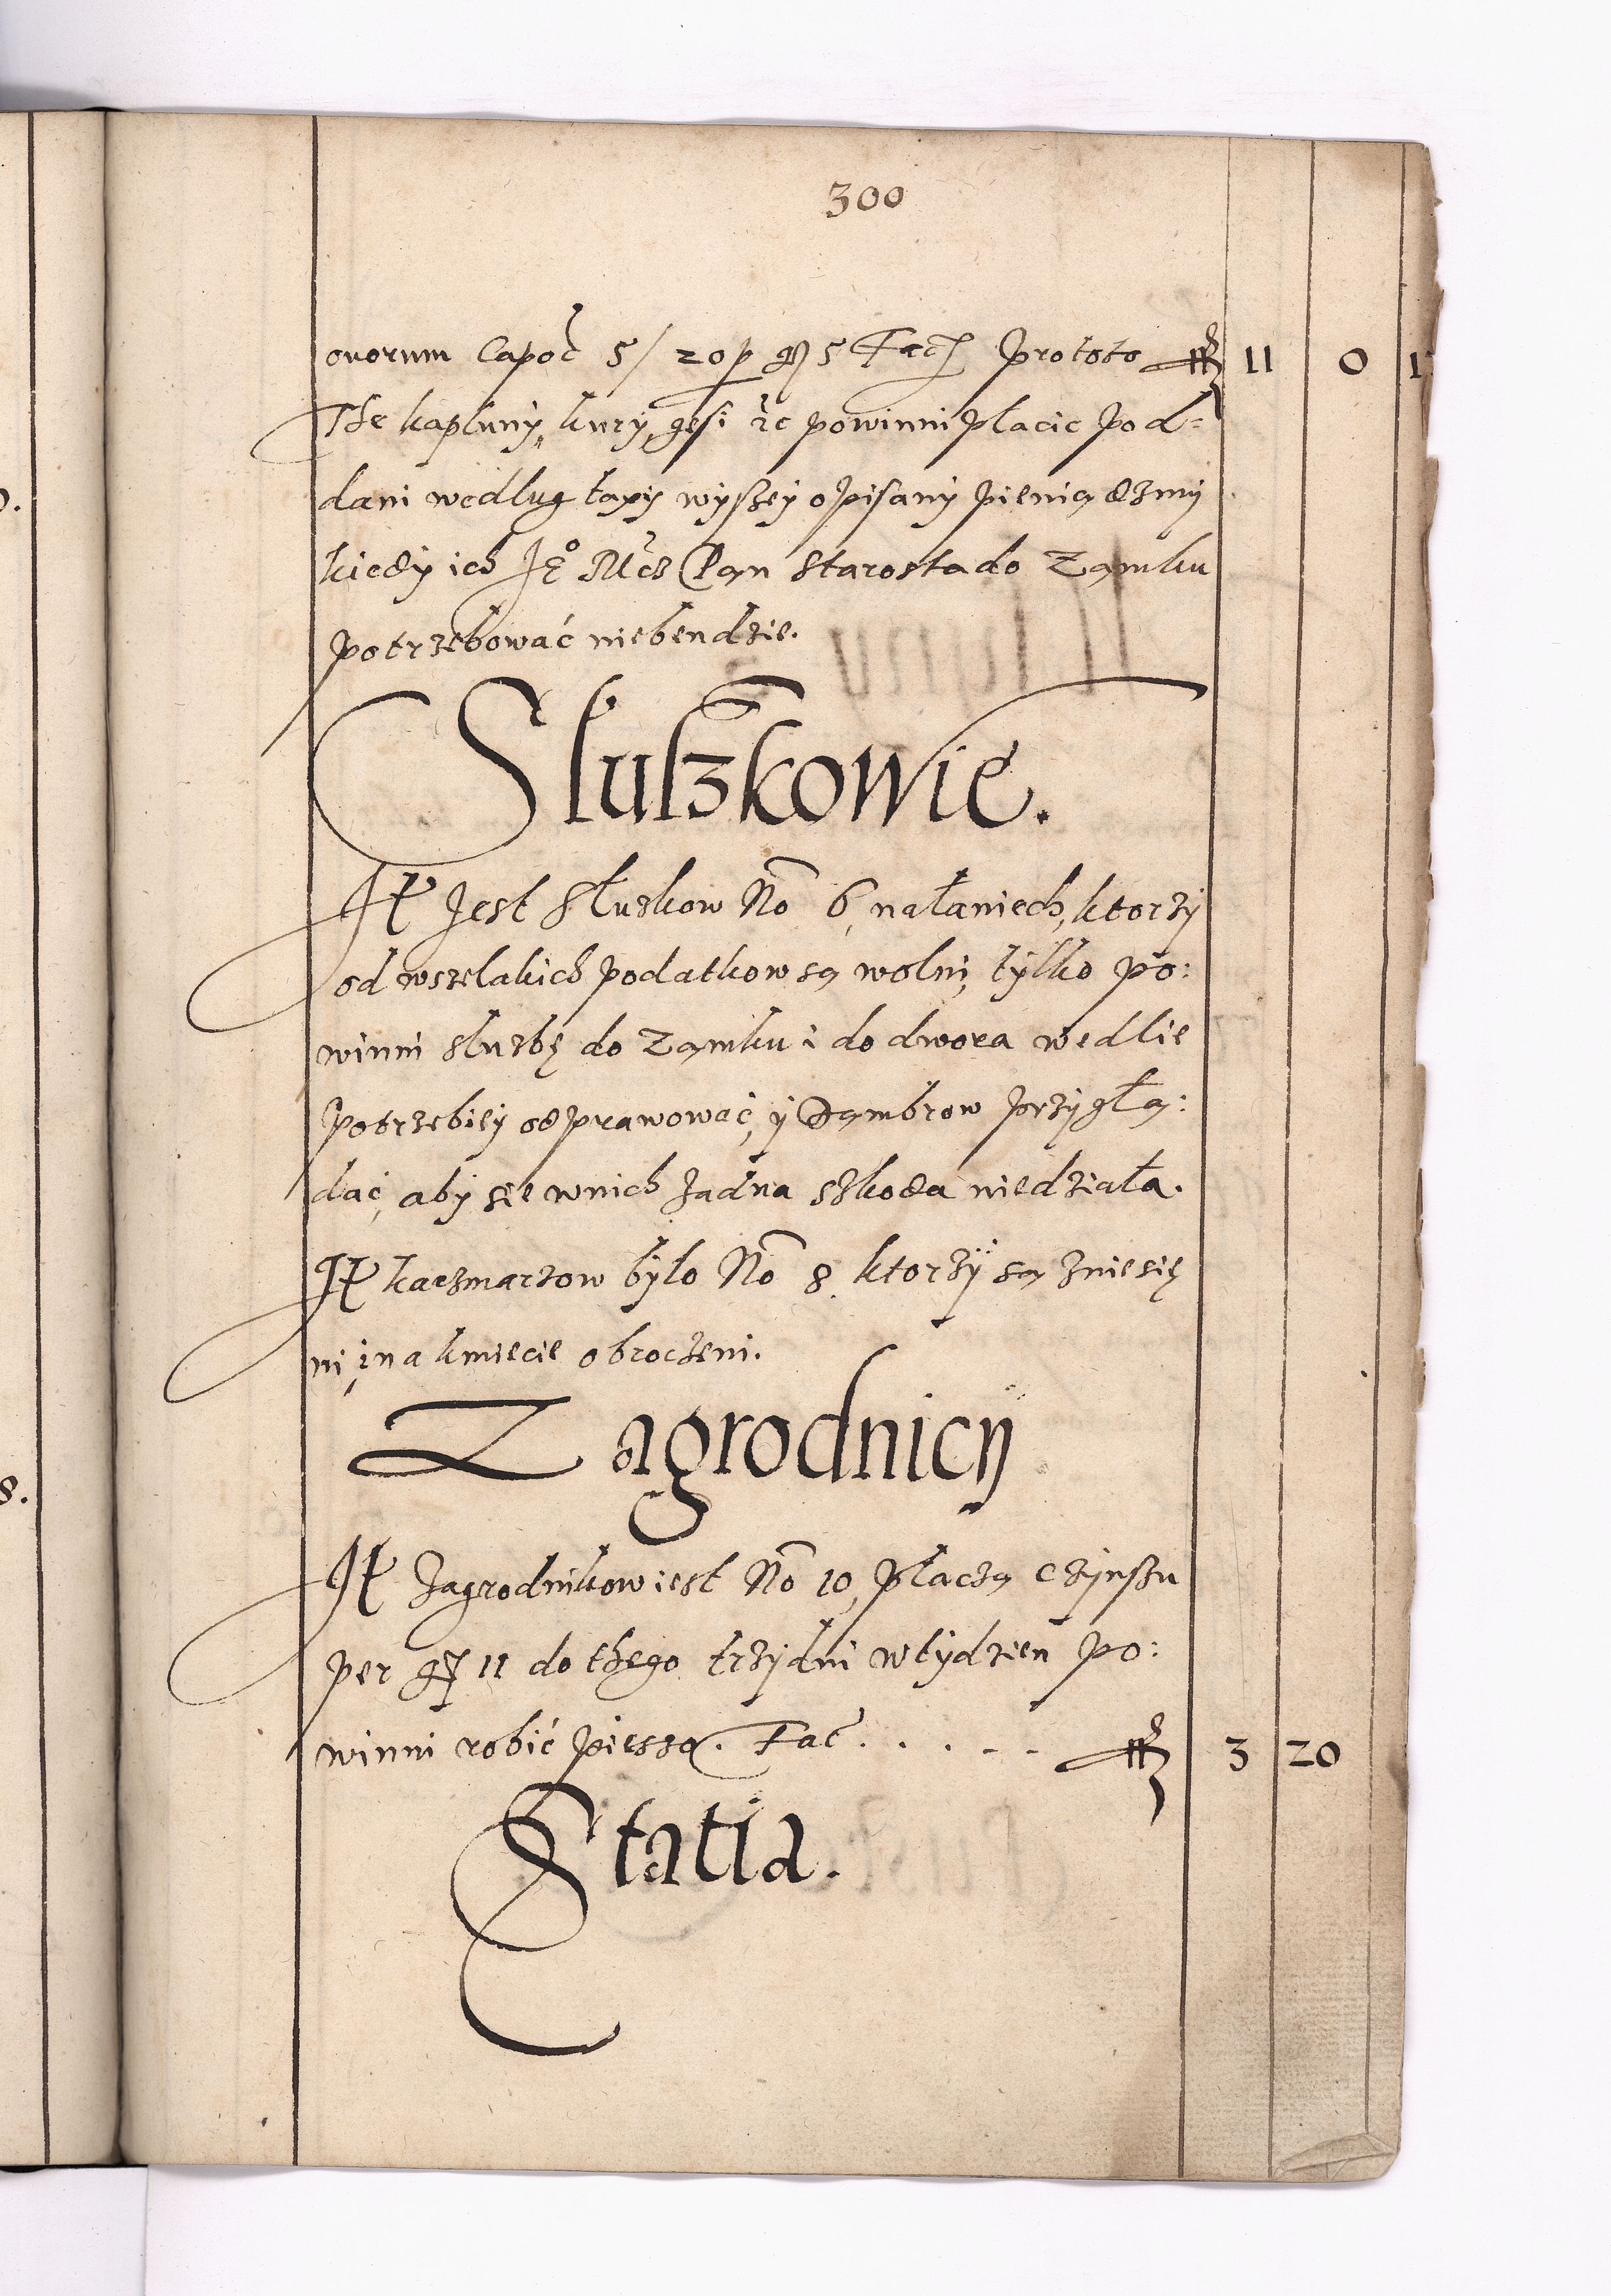 300
ouorum Capoc̃ 5/ 20 p gr 5 Fac Prototo fl 11 0 1
The kapłuny, kury, gęsi etc powinni płacic Pod=
dani według taxy wyszey opisany pieniądzmy
kiedy ich Je͠o Mcz Pan Starosta do Zamku
potrzebować niebendzie.
Slużkowie.
It Jest Służkow No 6, nałaniech, ktorzy
od wszelakich podatkow są wolni, tylko po:
winni służbę do Zamku i do dwora wedlie
Potrzebiey odprawować, y Dambrow przyglą:
dać, aby sie wnich żadna szkoda niedziała.
It kaczmarzow było No 8. ktorzÿ są zniesię
ni, i na kmiecie obroczeni.
Zagrodnicÿ
It Zagrodnikow iest No 10, płaczą czynszu
per gr 11 do thego trzy dni wtydzień po:
winni robić pieszo. Fac̃ . . . . - - fl 3 20
Statia.
0.
8.